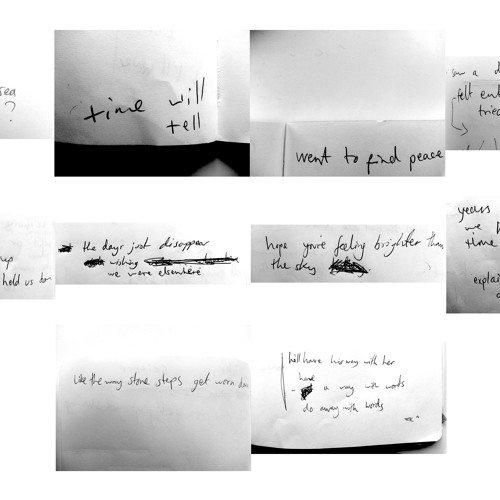 sea
?
time will
tell
went to find peace
saw a
felt
tried
up
hold us down
the days just disappear
wishing
we were elsewhere
hope you're feeling brighter than
the sky
years
we
time
explai
like the way stone steps get worn down
he'll have his way with her
have
- a way with words
do away with words